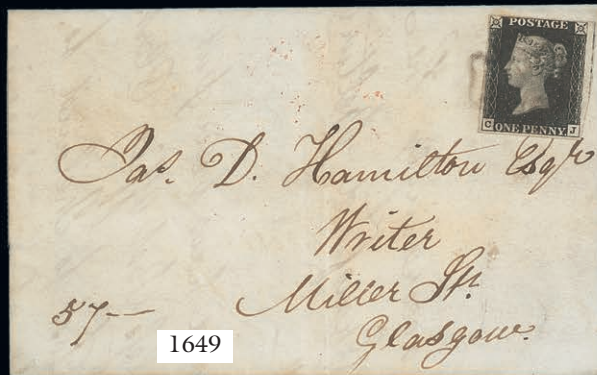 POSTAGE
C ONE PENNY J
Jas. D. Hamilton Esqr
Writer
Miller St.
57--
Glasgow.
1649